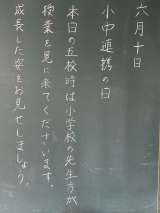 六月十日
小中連携の日
本日の五校時は小学校の先生方が
授業を見に来てくださいます。
成長した姿をお見せしましょう。